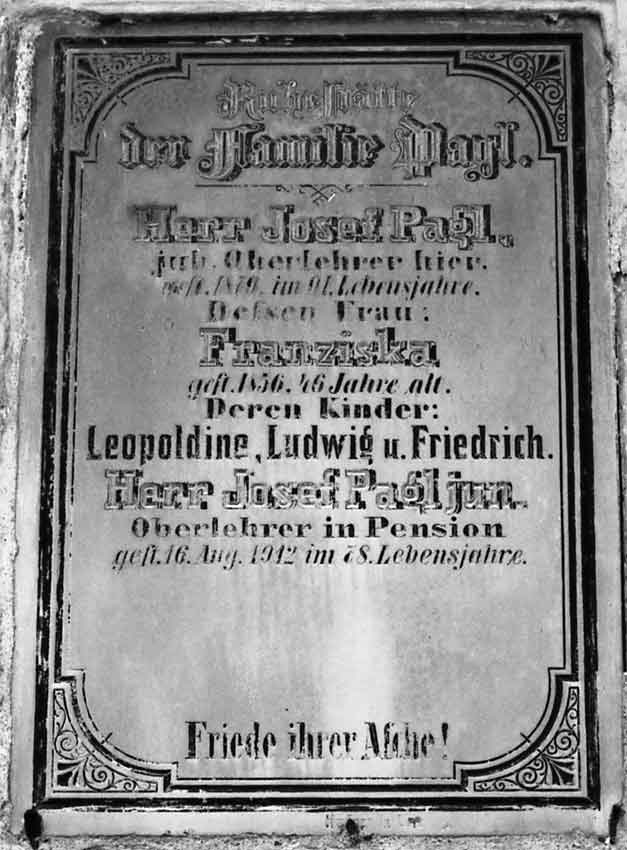 Ruhestätte
der Familie Pagl.
Herr Josef Pagl.,
jub. Oberlehrer hier.
gest. 1879. im 91. Lebensjahre.
Dessen Frau:
Franziska
gest. 1856. 46 Jahre alt.
Deren Kinder:
Leopoldine, Ludwig u. Friedrich.
Herr Josef Pagl jun.
Oberlehrer in Pension
gest. 16. Aug. 1912 im 78. Lebensjahre.
Friede ihrer Asche!